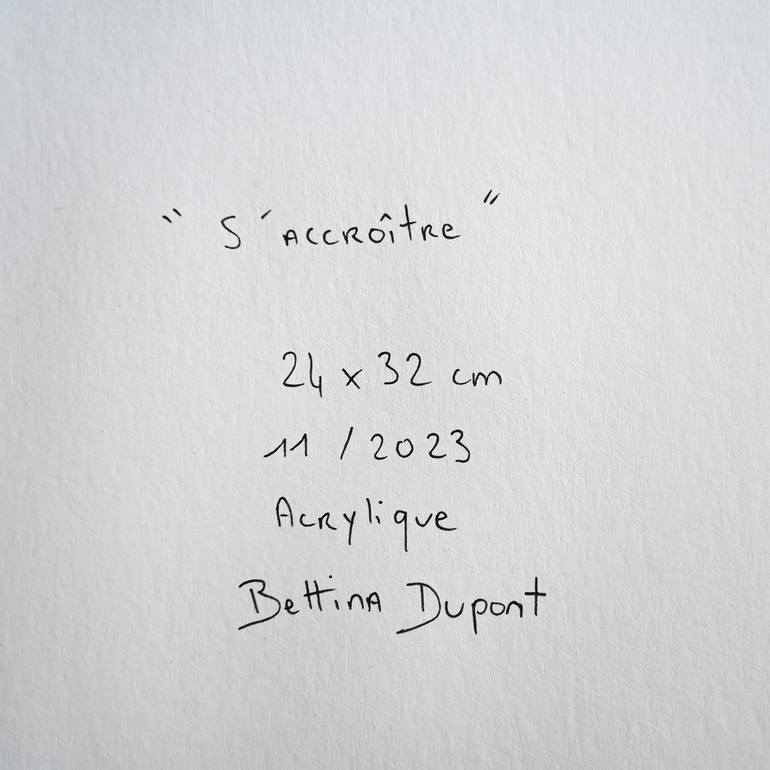 " S'ACCROÎTRE "
24 x 32 cm
11 / 2023
Acrylique
Bettina Dupont